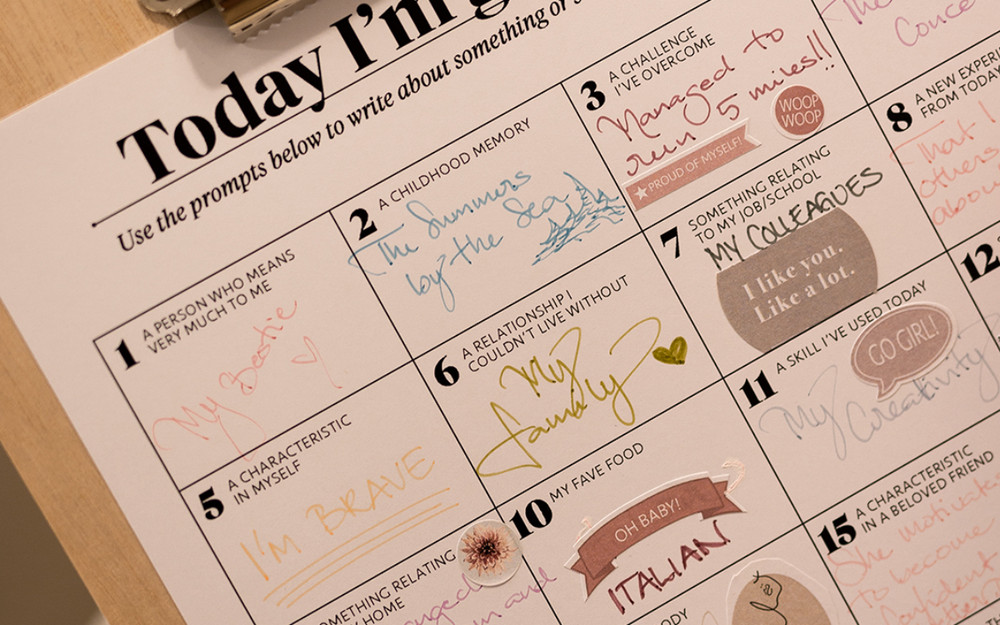 Today I'm
Use the prompts below to write about something or
1 A PERSON WHO MEANS
VERY MUCH TO ME
My Bestie
2 A CHILDHOOD MEMORY
The Summers
by the Sea
3 A CHALLENGE
I'VE OVERCOME
Managed to
run 5 miles!!
WOOP
WOOP
PROUD OF MYSELF!
The
Conce
5 A CHARACTERISTIC
IN MYSELF
I'M BRAVE
6 A RELATIONSHIP I
COULDN'T LIVE WITHOUT
My
family
7 SOMETHING RELATING
TO MY JOB/SCHOOL
MY COLLEAGUES
I like you.
Like a lot.
8 A NEW EXPERI
FROM TODAY
That I
others
abou
OMETHING RELATING
Y HOME
anged
10 MY FAVE FOOD
OH BABY!
ITALIAN
11 A SKILL I'VE USED TODAY
GO GIRL!
My Creativity
12
ODY
15 A CHARACTERISTIC
IN A BELOVED FRIEND
She motivates
to become
confident